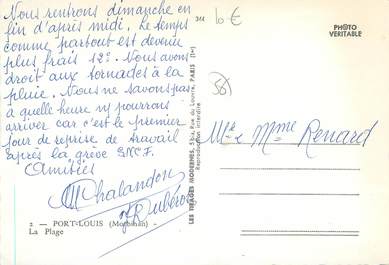 Nous rentrons dimanche en
fin d'après midi. Le temps
comme partout est devenu
plus frais 12°. Nous avons
droit aux tornades à la
pluie. Nous ne savons pas
à quelle heure ns pourrons
arriver car c'est le premier
jour de reprise de travail
après la grève SNCF.
Amitiés
MChalandon
2 - PORT-LOUIS (Morbihan) -
La Plage
LES TIRAGES MODERNES, 53 bis, Rue du Louvre, PARIS (1er)
Reproduction interdite
344
10€
PHOTO
VÉRITABLE
Mr & Mme Renard